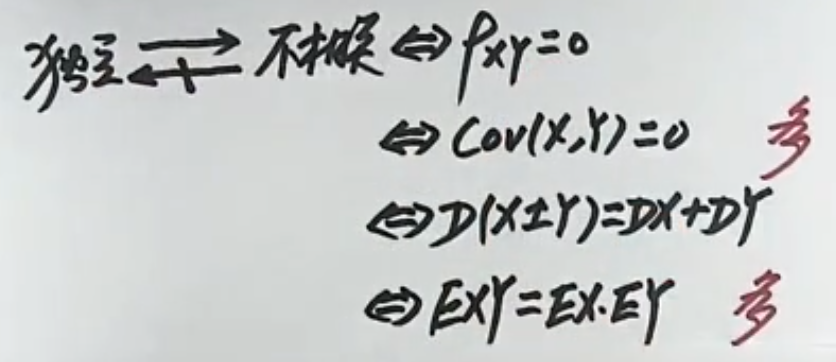 独立 ⇄ 不相关 ⇔ ρxy=0
⇔ Cov(X,Y)=0 多
⇔ D(X±Y)=DX+DY
⇔ EXY=EX·EY 多